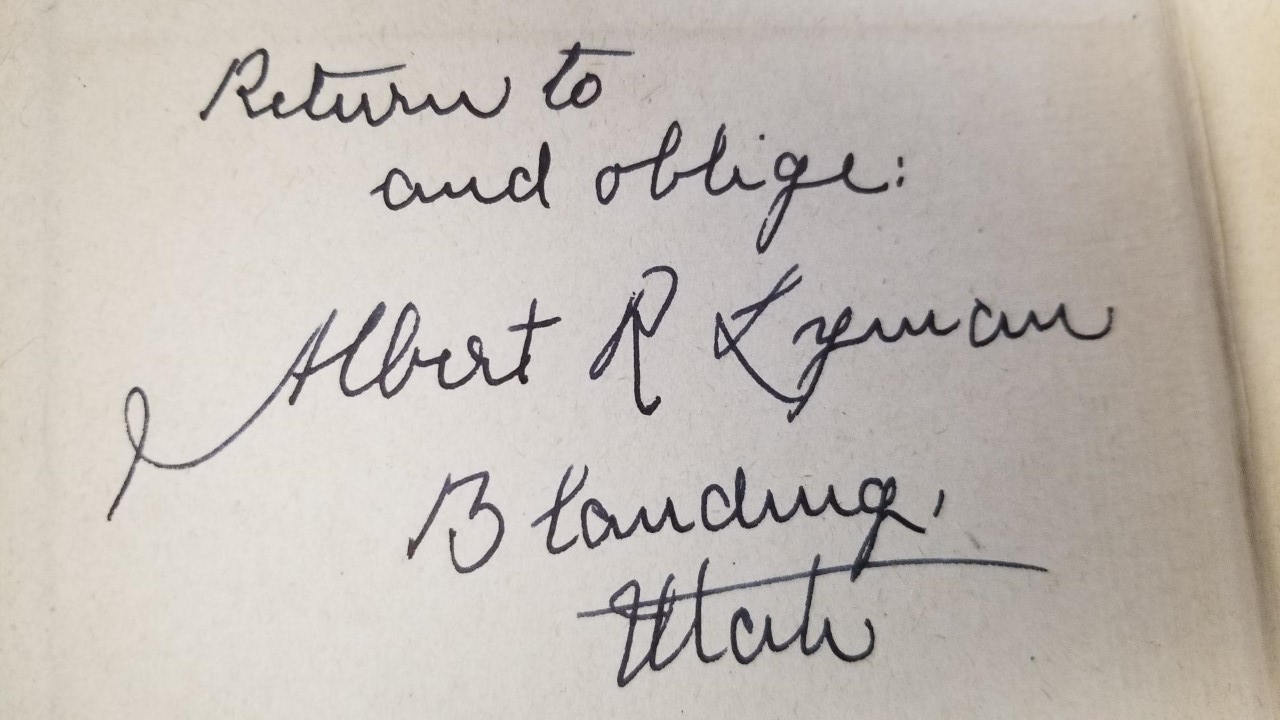 Return to
and oblige:
Albert R Lyman
Blanding,
Utah